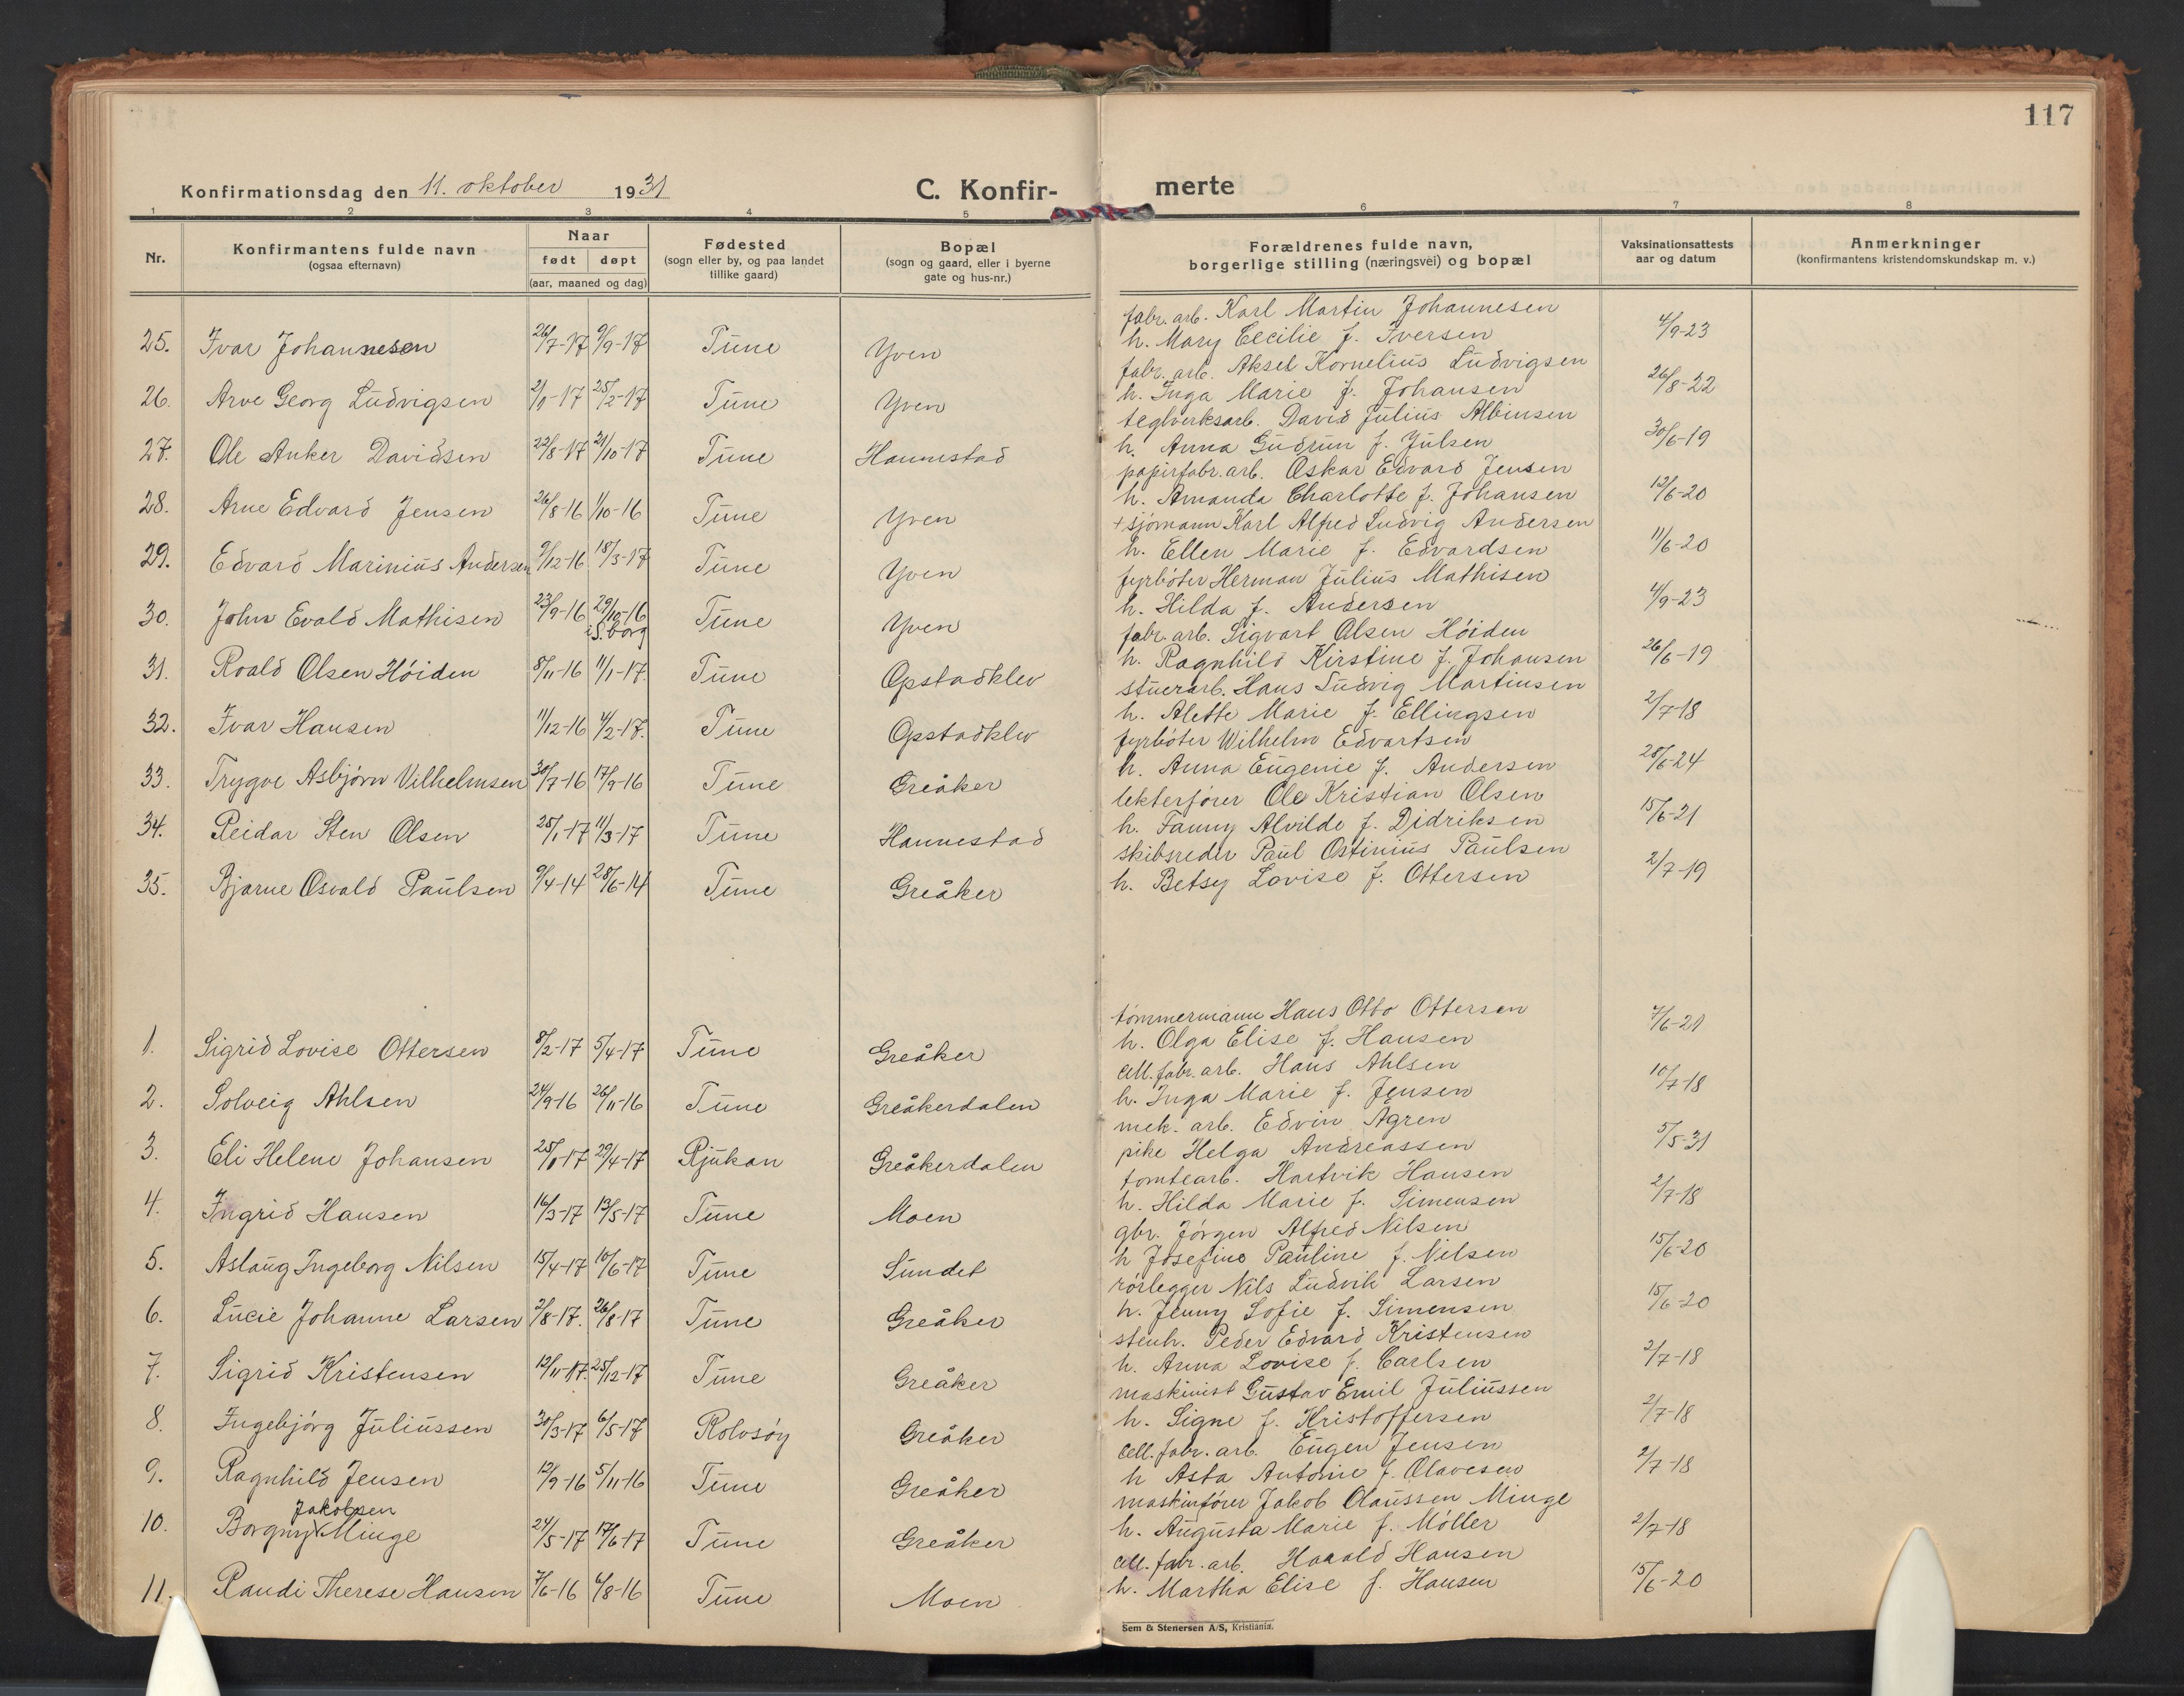 117
Konfirmationsdag den 11. oktober 1931 C. Konfir- merte
1 2 3 4 5 6 7 8
Nr. Konfirmantens fulde navn (ogsaa efternavn) Naar født døpt (aar, maaned og dag) Fødested (sogn eller by, og paa landet tillike gaard) Bopæl (sogn og gaard, eller i byerne gate og hus-nr.) Forældrenes fulde navn, borgerlige stilling (næringsvei) og bopæl Vaksinationsattests aar og datum Anmerkninger (konfirmantens kristendomskundskap m. v.)
fabr. arb. Karl Martin Johannesen
25. Ivar Johannesen 26/7-17 9/9-17 Tune Yven h. Mary Cecilie f. Iversen 4/9-23
fabr. arb. Aksel Kornelius Ludvigsen
26. Arve Georg Ludvigsen 2/1-17 25/2-17 Tune Yven h. Inga Marie f. Johansen 26/8-22
teglverksarb. David Julius Albinsen
27. Ole Anker Davidsen 22/8-17 21/10-17 Tune Hannestad h. Anna Gudrun f. Julsen 30/6-19
papirfabr. arb. Oskar Edvard Jensen
28. Arne Edvard Jensen 26/8-16 1/10-16 Tune Yven h. Amanda Charlotte f. Johansen 12/6-20
+ sjømann Karl Alfred Ludvig Andersen
29. Edvard Marinius Andersen 9/12-16 18/3-17 Tune Yven h. Ellen Marie f. Edvardsen 11/6-20
fyrbøter Herman Julius Mathisen
30. John Evald Mathisen 23/9-16 29/10-16 i S.borg Tune Yven h. Hilda f. Andersen 4/9-23
fabr. arb. Sigvart Olsen Høiden
31. Roald Olsen Høiden 8/11-16 11/1-17. Tune Opstadklev h. Ragnhild Kirstine f. Johansen 26/6-19
stuerarb. Hans Ludvig Martinsen
32. Ivar Hansen 11/12-16 4/2-17. Tune Opstadklev h. Alette Marie f. Ellingsen 2/7-18
fyrbøter Wilhelm Edvartsen
33. Trygve Asbjørn Vilhelmsen 30/7-16 17/9-16 Tune Greåker h. Anna Eugenie f. Andersen 28/6-24
lekterfører Ole Kristian Olsen
34. Reidar Sten Olsen 25/1-17 11/3-17 Tune Hannestad h. Fanny Alvilde f. Didriksen 15/6-21
skibsreder Paul Ostinius Paulsen
35. Bjarne Osvald Paulsen 9/4-14 28/6-14 Tune Greåker h. Betsy Lovise f. Ottersen 2/7-19
tømmermann Hans Otto Ottersen
1. Sigrid Lovise Ottersen 8/2-17 5/4-17 Tune Greåker h. Olga Elise f. Hansen 7/6-21
cell. fabr. arb. Hans Ahlsen
2. Solveig Ahlsen 24/9-16 26/11-16 Tune Greåkerdalen h. Inga Marie f. Jensen 10/7-18
mek. arb. Edvin Agren
3. Eli Helene Johansen 25/1-17 29/4-17 Rjukan Greåkerdalen pike Helga Andreassen 5/5-31
tomtearb. Hartvik Hansen
4. Ingrid Hansen 16/3-17 13/5-17 Tune Moen h. Hilda Marie f. Simensen 2/7-18
gbr. Jørgen Alfred Nilsen
5. Aslaug Ingeborg Nilsen 15/4-17 10/6-17 Tune Sundet h Josefine Pauline f. Nilsen 15/6-20
rørlegger Nils Ludvik Larsen
6. Lucie Johanne Larsen 2/8-17. 26/8-17 Tune Greåker h. Jenny Sofie f. Simensen 15/6-20
stenh. Peder Edvard Kristensen
7. Sigrid Kristensen 12/11-17. 25/12-17 Tune Greåker h. Anna Lovise f. Carlsen 2/7-18
maskinist Gustav Emil Juliussen
8. Ingebjørg Juliussen 30/3-17 6/5-17 Rolvsøy Greåker h. Signe f. Kristoffersen 2/7-18
cell. fabr. arb. Eugen Jensen
9. Ragnhild Jensen 12/9-16 5/11-16 Tune Greåker h Asta Antonie f. Olavesen 2/7-18
maskinfører Jakob Olaussen Minge
Jakobsen
10. Borgny Minge 24/5-17 17/6-17 Tune Greåker h. Augusta Marie f. Møller 2/7-18
cell. fabr. arb. Harald Hansen
11. Randi Therese Hansen 7/6-16 6/8-16 Tune Moen h. Martha Elise f. Hansen 15/6-20
Sem & Stenersen A/S, Kristiania.